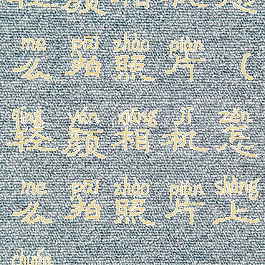 me pai zhào piàn
么拍照片（
qīng yán xiāng jī zěn
轻颜相机怎
me pāi zhào piàn shàng
么拍照片上
chuán